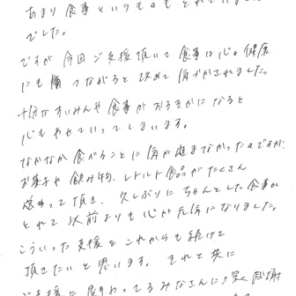 あまり食事というものをとれていません
でした。
ですが今回ご支援頂いて食事は心の健康
にも繋がると改めて気づかされました。
十分なすいみんや食事がおろそかになると
心もやせていってしまいます。
なかなか食べることに気が進まなかったのですが
お菓子や飲み物、レトルト食品がたくさん
入って頂き、久しぶりにちゃんとした食事が
とれて以前よりも心が元気になりました。
こういった支援をこれからも続けて
頂きたいと思います。それと共に
ご支援に関わってるみなさんに深く感謝